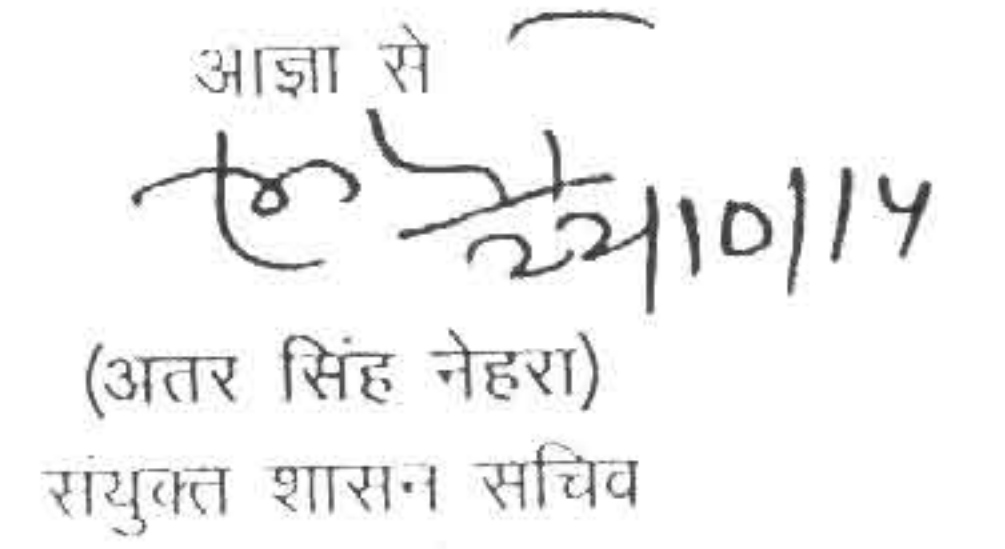 आज्ञा से
22/10/14
(अतर सिंह नेहरा)
संयुक्त शासन सचिव